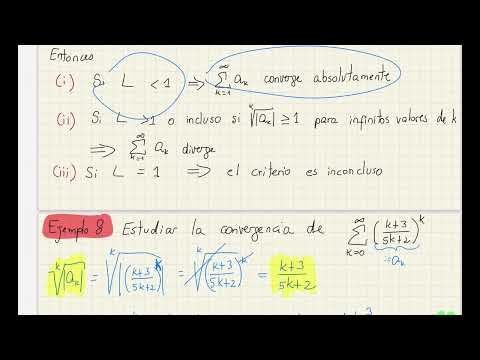 Entonces
(i) Si L < 1 ⟹ ∑_{k=1}^{∞} a_k converge absolutamente
(ii) Si L > 1 o incluso si ᵏ√|a_k| ≥ 1 para infinitos valores de k
⟹ ∑_{k=1}^{∞} a_k diverge
(iii) Si L = 1 ⟹ el criterio es inconcluso
Ejemplo 8 Estudiar la convergencia de ∑_{k=0}^{∞} ((k+3)/(5k+2))^k
:= a_k
ᵏ√|a_k| = ᵏ√|((k+3)/(5k+2))^k| = ᵏ√((k+3)/(5k+2))^k = (k+3)/(5k+2)